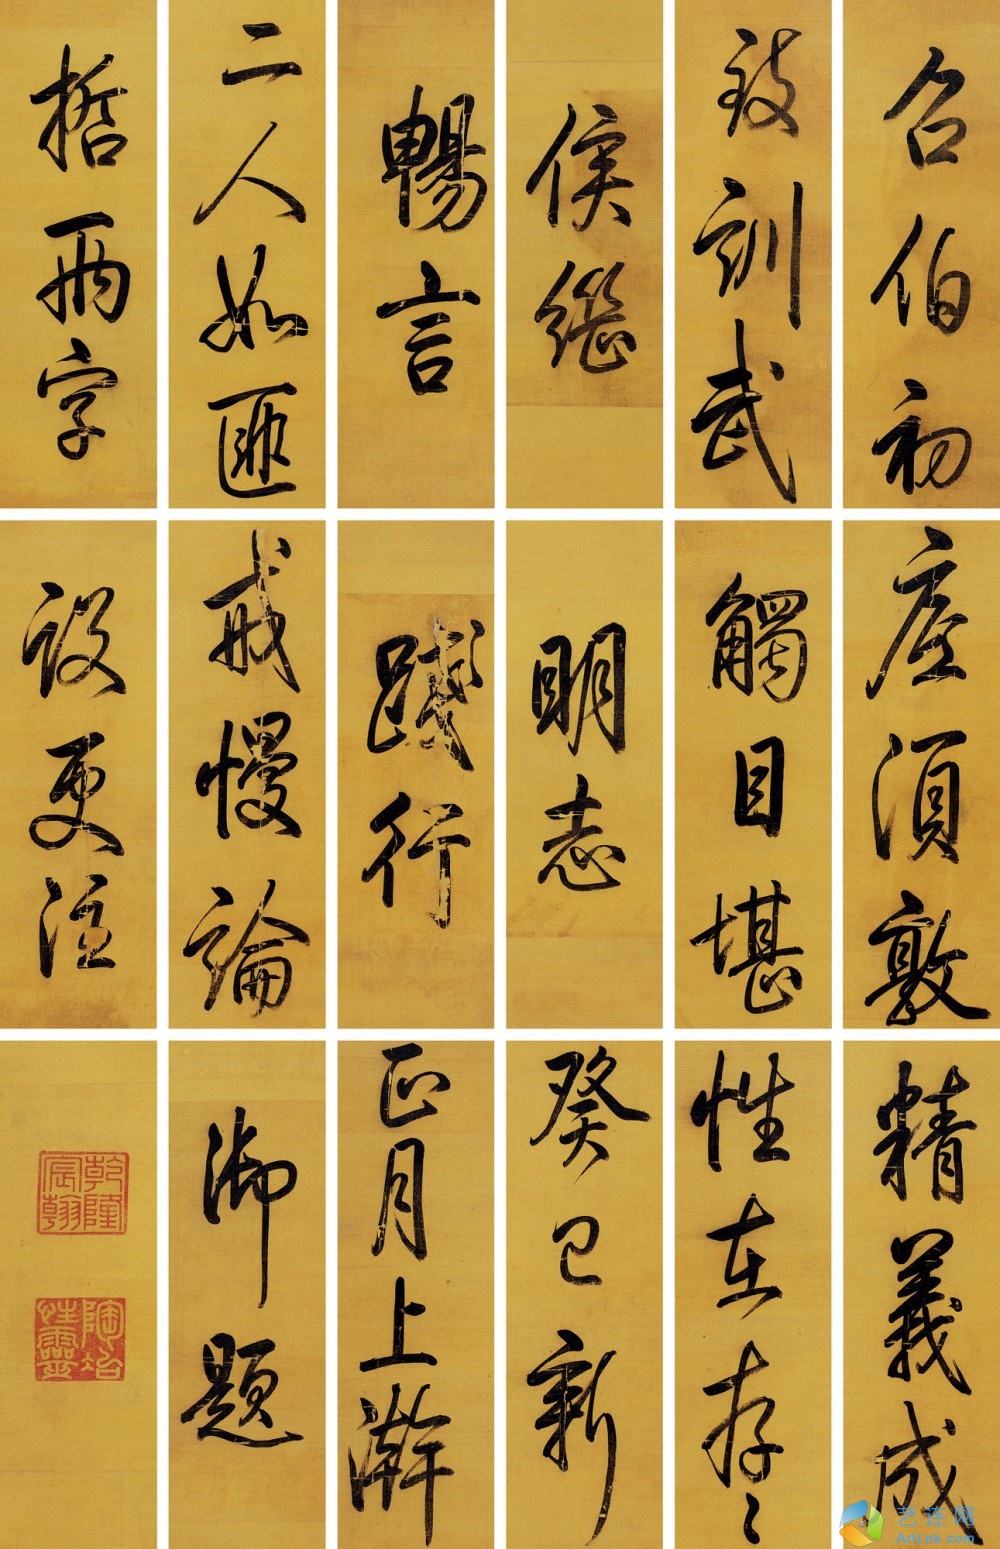 召伯初
致訓武
侯繼
暢言
二人如匪
哲兩字
座須敦
觸目堪
明志
踐行
戒慢論
設更注
精義成
性在存〻
癸巳新
正月上澣
御題
乾隆宸翰
陶冶性靈
艺连网
Artlink.com